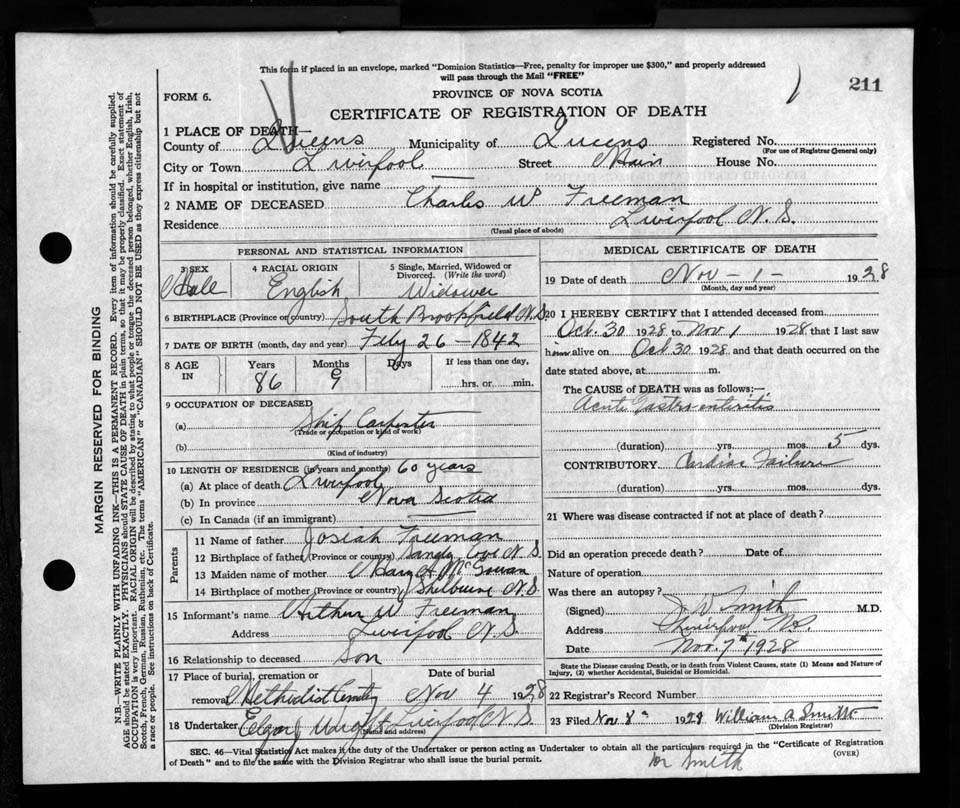 This form if placed in an envelope, marked "Dominion Statistics—Free, penalty for improper use $300," and properly addressed
will pass through the Mail "FREE"
211
FORM 6.
PROVINCE OF NOVA SCOTIA
CERTIFICATE OF REGISTRATION OF DEATH
1 PLACE OF DEATH—
County of Queens Municipality of Queens Registered No.
(For use of Registrar General only)
City or Town Liverpool Street Main House No.
If in hospital or institution, give name
2 NAME OF DECEASED Charles W Freeman
Residence Liverpool N.S.
(Usual place of abode)
PERSONAL AND STATISTICAL INFORMATION
3 SEX Male
4 RACIAL ORIGIN English
5 Single, Married, Widowed or Divorced. (Write the word) Widower
6 BIRTHPLACE (Province or country) South Brookfield N.S
7 DATE OF BIRTH (month, day and year) Feby 26 - 1842
8 AGE IN Years 86 Months 9 Days If less than one day, hrs. or min.
9 OCCUPATION OF DECEASED
(a) Ship Carpenter
(Trade or occupation or kind of work)
(b)
(Kind of industry)
10 LENGTH OF RESIDENCE (in years and months) 60 years
(a) At place of death Liverpool
(b) In province Nova Scotia
(c) In Canada (if an immigrant)
Parents
11 Name of father Josiah Freeman
12 Birthplace of father (Province or country) Cove N.S.
13 Maiden name of mother Mary A McGowan
14 Birthplace of mother (Province or country) Shelburne N.S.
15 Informant's name Arthur W Freeman
Address Liverpool N.S.
16 Relationship to deceased Son
17 Place of burial, cremation or
removal Methodist Cemetery Nov 4 1928
18 Undertaker Wright Liverpool N.S.
(Name and address)
MEDICAL CERTIFICATE OF DEATH
19 Date of death Nov - 1 - 1928
(Month, day and year)
20 I HEREBY CERTIFY that I attended deceased from
Oct. 30 1928 to Nov 1 1928 that I last saw
him alive on Oct 30 1928 and that death occurred on the
date stated above, at m.
The CAUSE of DEATH was as follows:—
Acute Gastro-enteritis
(duration) yrs. mos. 5 dys.
CONTRIBUTORY Cardiac Failure
(duration) yrs. mos. dys.
21 Where was disease contracted if not at place of death?
Did an operation precede death? Date of
Nature of operation
Was there an autopsy?
(Signed) J W Smith M.D.
Address Liverpool N.S.
Date Nov. 7th 1928
State the Disease causing Death, or in death from Violent Causes, state (1) Means and Nature of
Injury, (2) whether Accidental, Suicidal or Homicidal.
22 Registrar's Record Number
23 Filed Nov 8th 1928 William A Smith
(Division Registrar)
SEC. 46—Vital Statistics Act makes it the duty of the Undertaker or person acting as Undertaker to obtain all the particulars required in the "Certificate of Registration
of Death" and to file the same with the Division Registrar who shall issue the burial permit.
(OVER)
Dr Smith
MARGIN RESERVED FOR BINDING
N.B.—WRITE PLAINLY WITH UNFADING INK—THIS IS A PERMANENT RECORD. Every item of information should be carefully supplied.
AGE should be stated EXACTLY. PHYSICIANS should STATE CAUSE OF DEATH in plain terms, so that it may be properly classified. Exact statement of
OCCUPATION is very important. RACIAL ORIGIN will be described by stating to what people or tongue the deceased person belonged, whether English, Irish,
Scotch, French, German, Russian, Ruthenian, etc. The terms "AMERICAN" or "CANADIAN" SHOULD NOT BE USED as they express citizenship but not
a race or people. See instructions on back of Certificate.